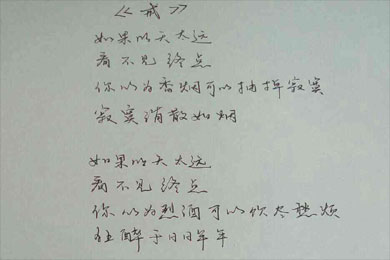 《戒》
如果明天太远
看不见终点
你以为香烟可以抽掉寂寞
寂寞消散如烟
如果明天太远
看不见终点
你以为烈酒可以饮尽愁烦
狂醉于日日年年